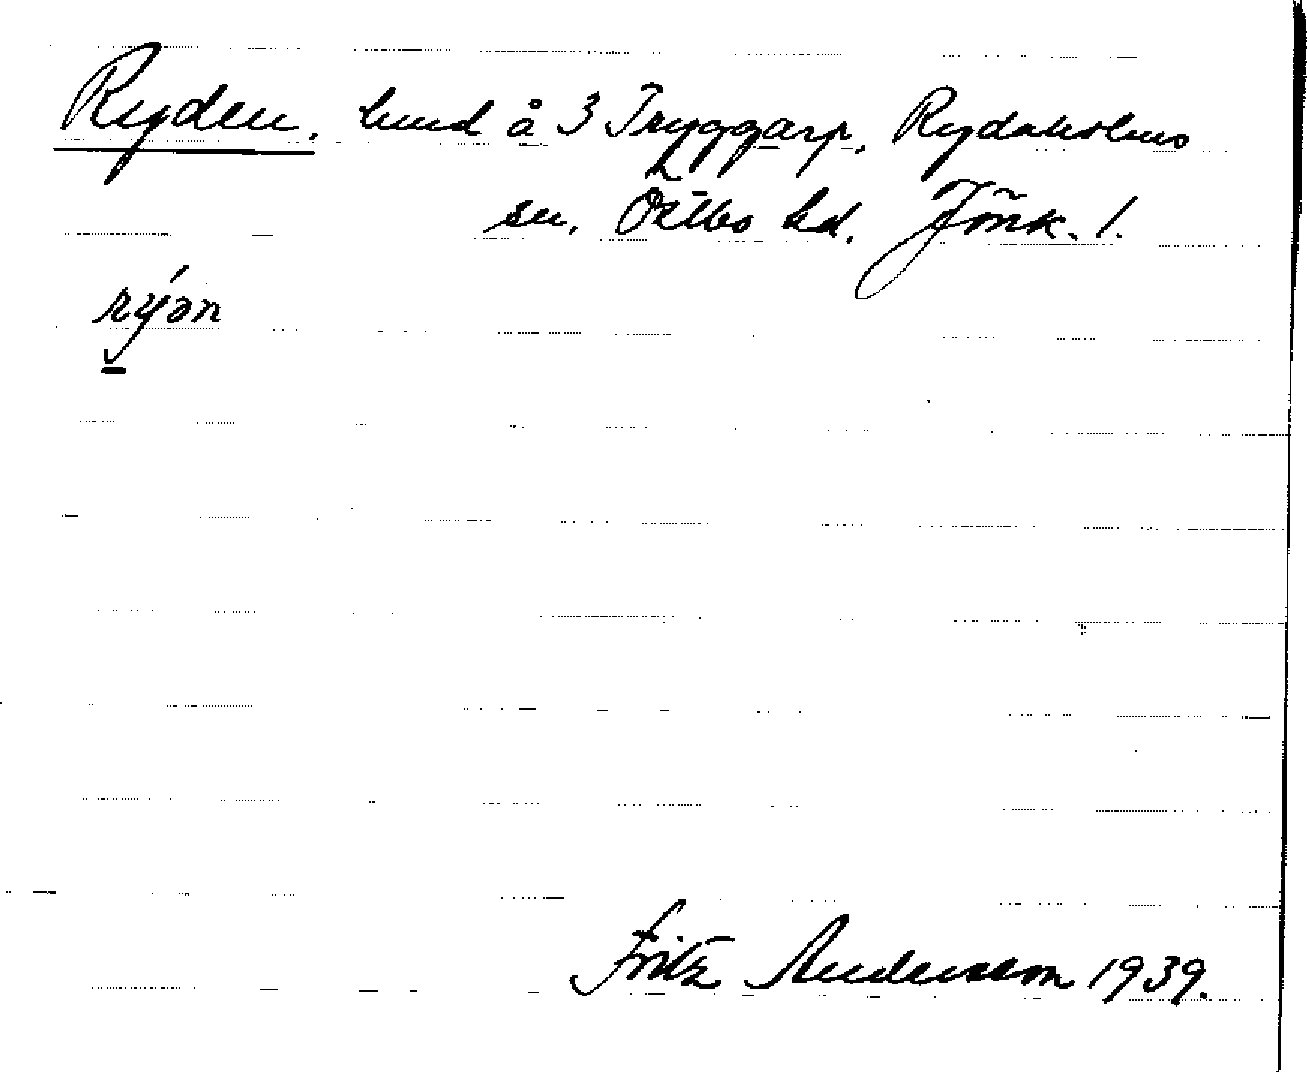 Ryden, lund å 3 Tryggarp, Rydaholms
sn. Östbo hd. Jönk. l.
rýən
Fritz Andersson 1939.